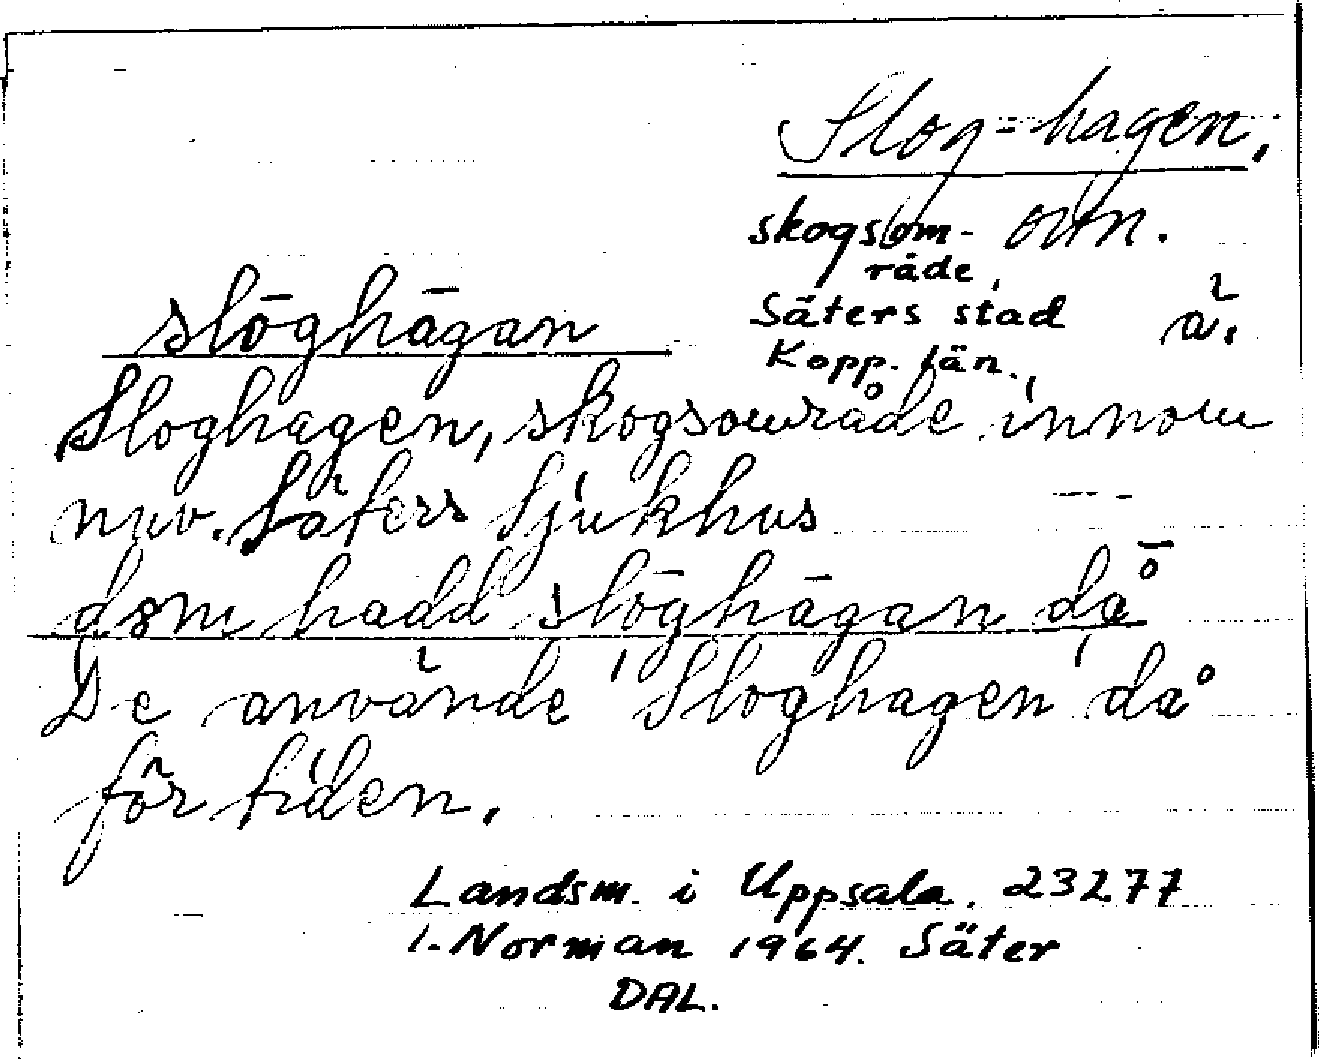 Slog-hagen,
skogsom- ovn.
råde,
Säters stad ä.
Kopp. län.,
slōghāgan
Sloghagen, skogsområde innom
nuv. Säters Sjukhus
dɘm hadd slōghāgan då̄
De använde Sloghagen då
för tiden.
Landsm. i Uppsala. 23277
I. Norman 1964. Säter
DAL.